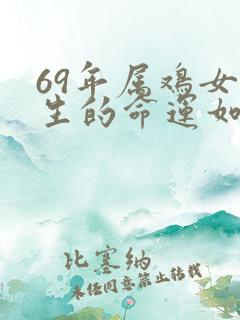 69年属鸡女
生的命运如
比塞纳
未经同意禁止转载